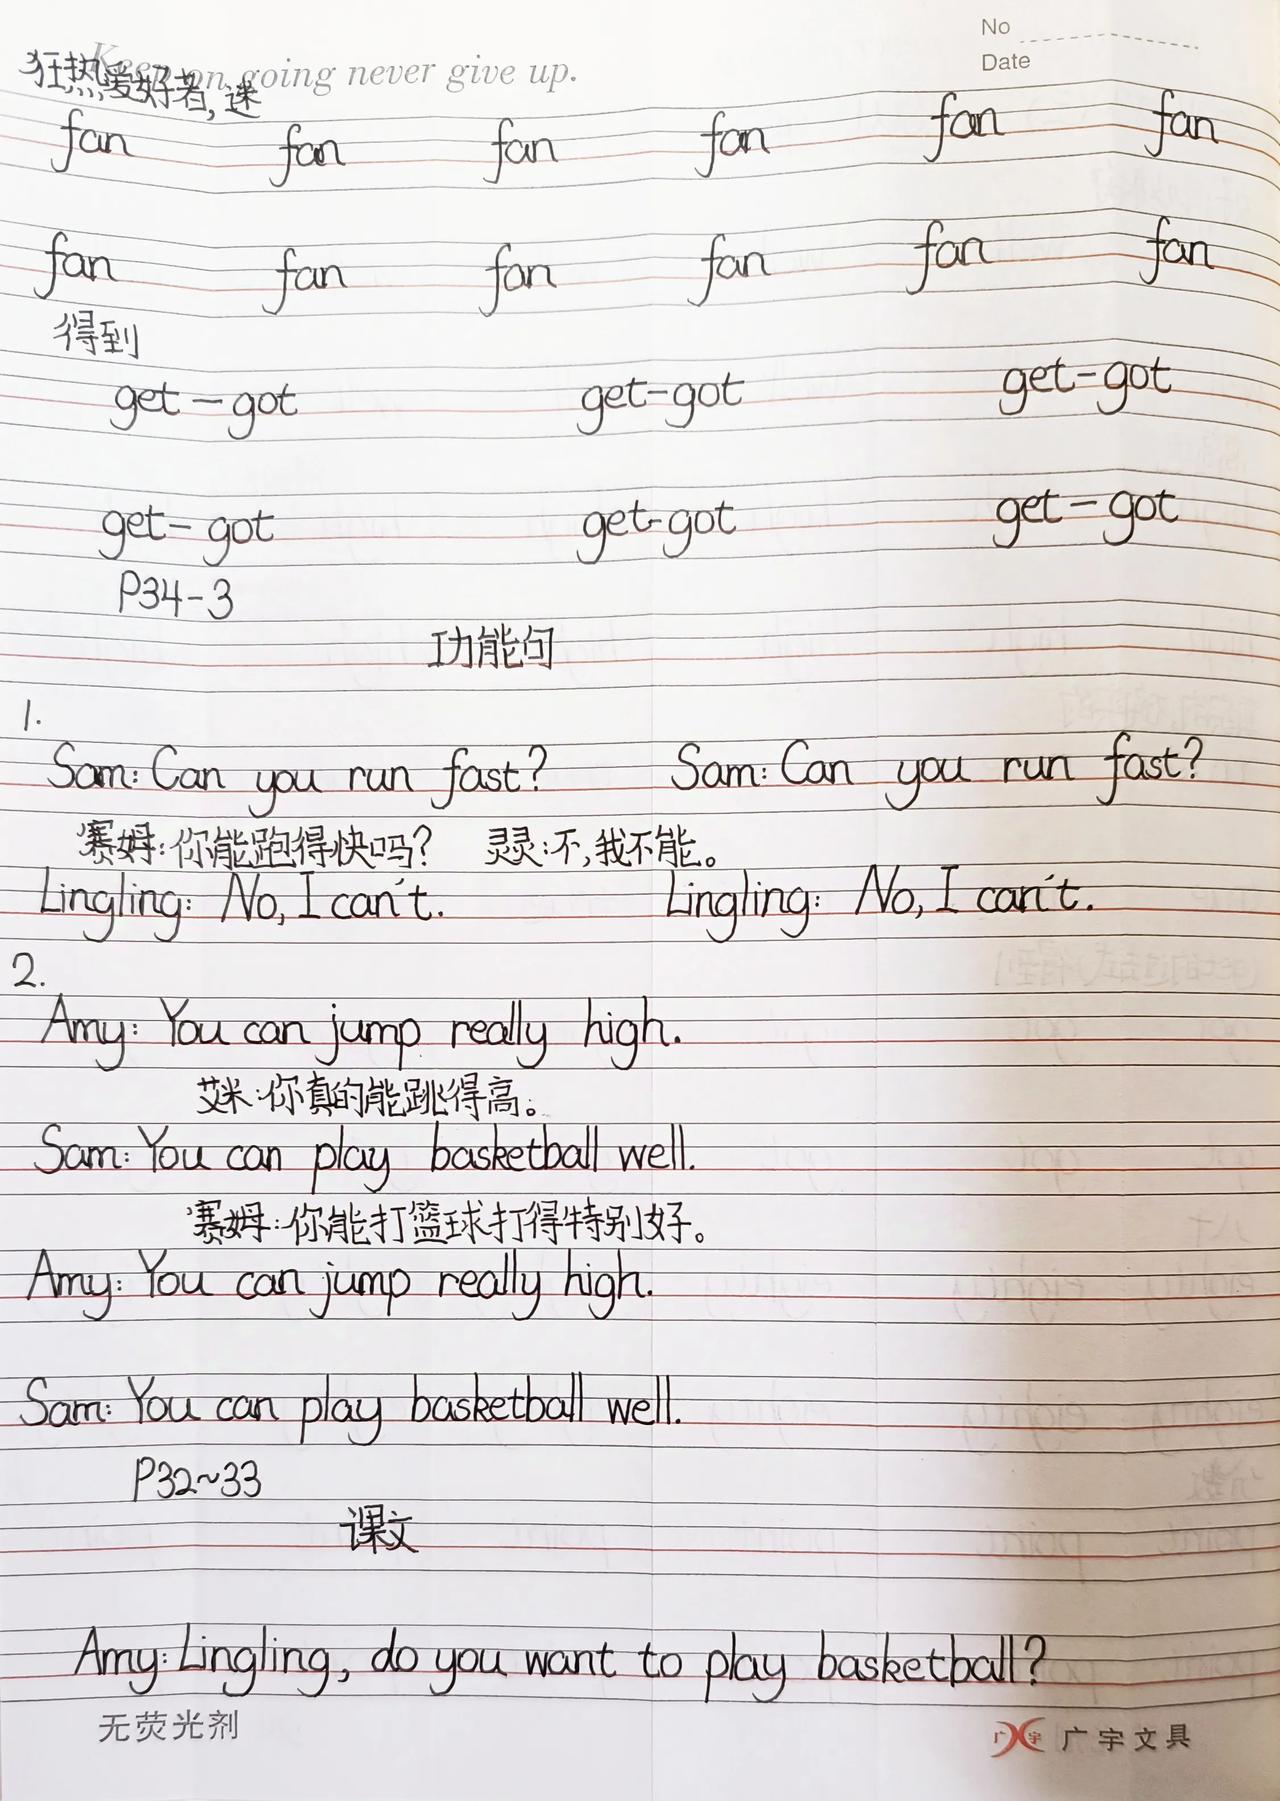 No
Date
Keep on going never give up.
狂热爱好者,迷
fan fan fan fan fan fan
fan fan fan fan fan fan
得到
get-got get-got get-got
get-got get-got get-got
P34-3
功能句
1.
Sam: Can you run fast? Sam: Can you run fast?
赛姆:你能跑得快吗? 灵灵:不,我不能。
Lingling: No, I can't. Lingling: No, I can't.
2.
Amy: You can jump really high.
艾米:你真的能跳得高。
Sam: You can play basketball well.
赛姆:你能打篮球打得特别好。
Amy: You can jump really high.
Sam: You can play basketball well.
P32~33
课文
Amy: Lingling, do you want to play basketball?
无荧光剂
广宇 广宇文具